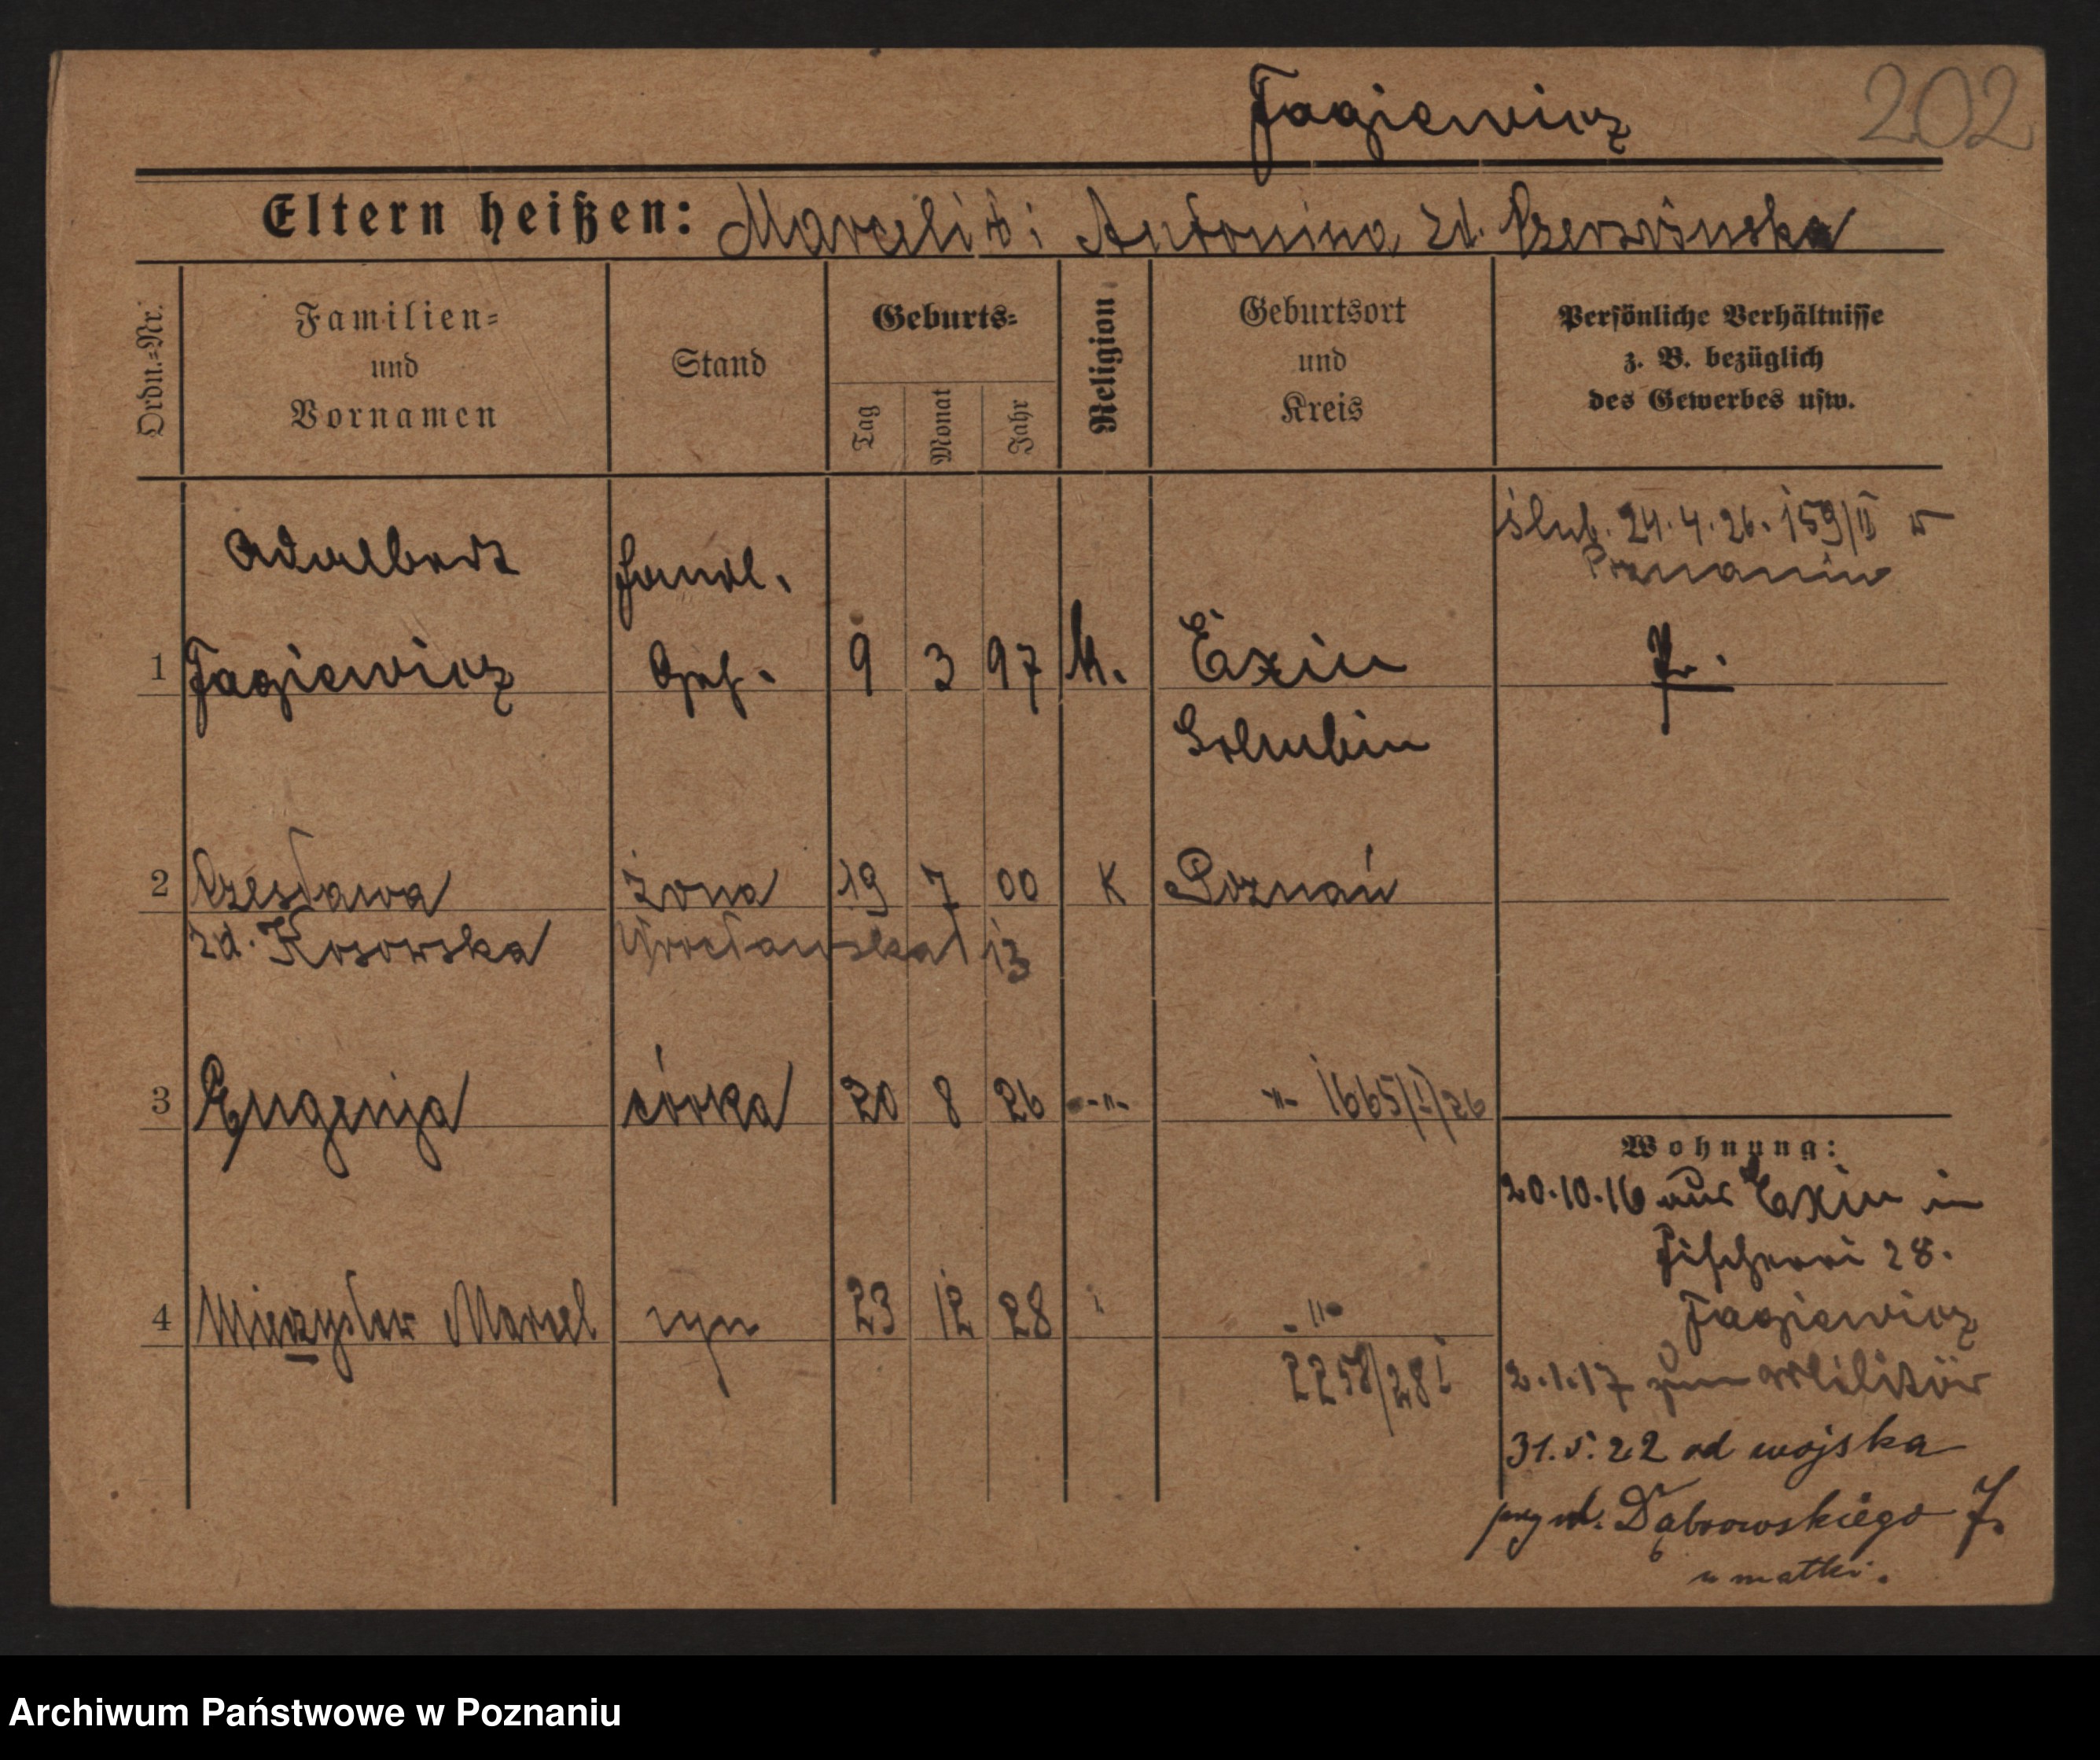 Jagiewicz
202
Eltern heißen: Marceli i Antonina zd. Czerwińska
Ordn.-Nr.
Familien-
und
Vornamen
Stand
Geburts-
Tag
Monat
Jahr
Religion
Geburtsort
und
Kreis
Persönliche Verhältnisse
z. B. bezüglich
des Gewerbes usw.
ślub. 24.4.26. 159/II w
Poznaniu
Adalbert
Handl.
1 Jagiewicz 9 3 97 k. Exin Pr.
Schubin
2 Czesława żona 19 7 00 K Poznań
zd. Kosowska Wrocławska 13
3 Eugenja córka 20 8 26 -"- -"- 1665/I/26
Wohnung:
20.10.16 aus Exin in
Fischerei 28.
Jagiewicz
4 Mieczysław Marcel syn 23 12 28 " -"-
2258/28 I
2.1.17 zum Militär
31.5.22 od wojska
przy ul. Dąbrowskiego 7.
u matki.
Archiwum Państwowe w Poznaniu